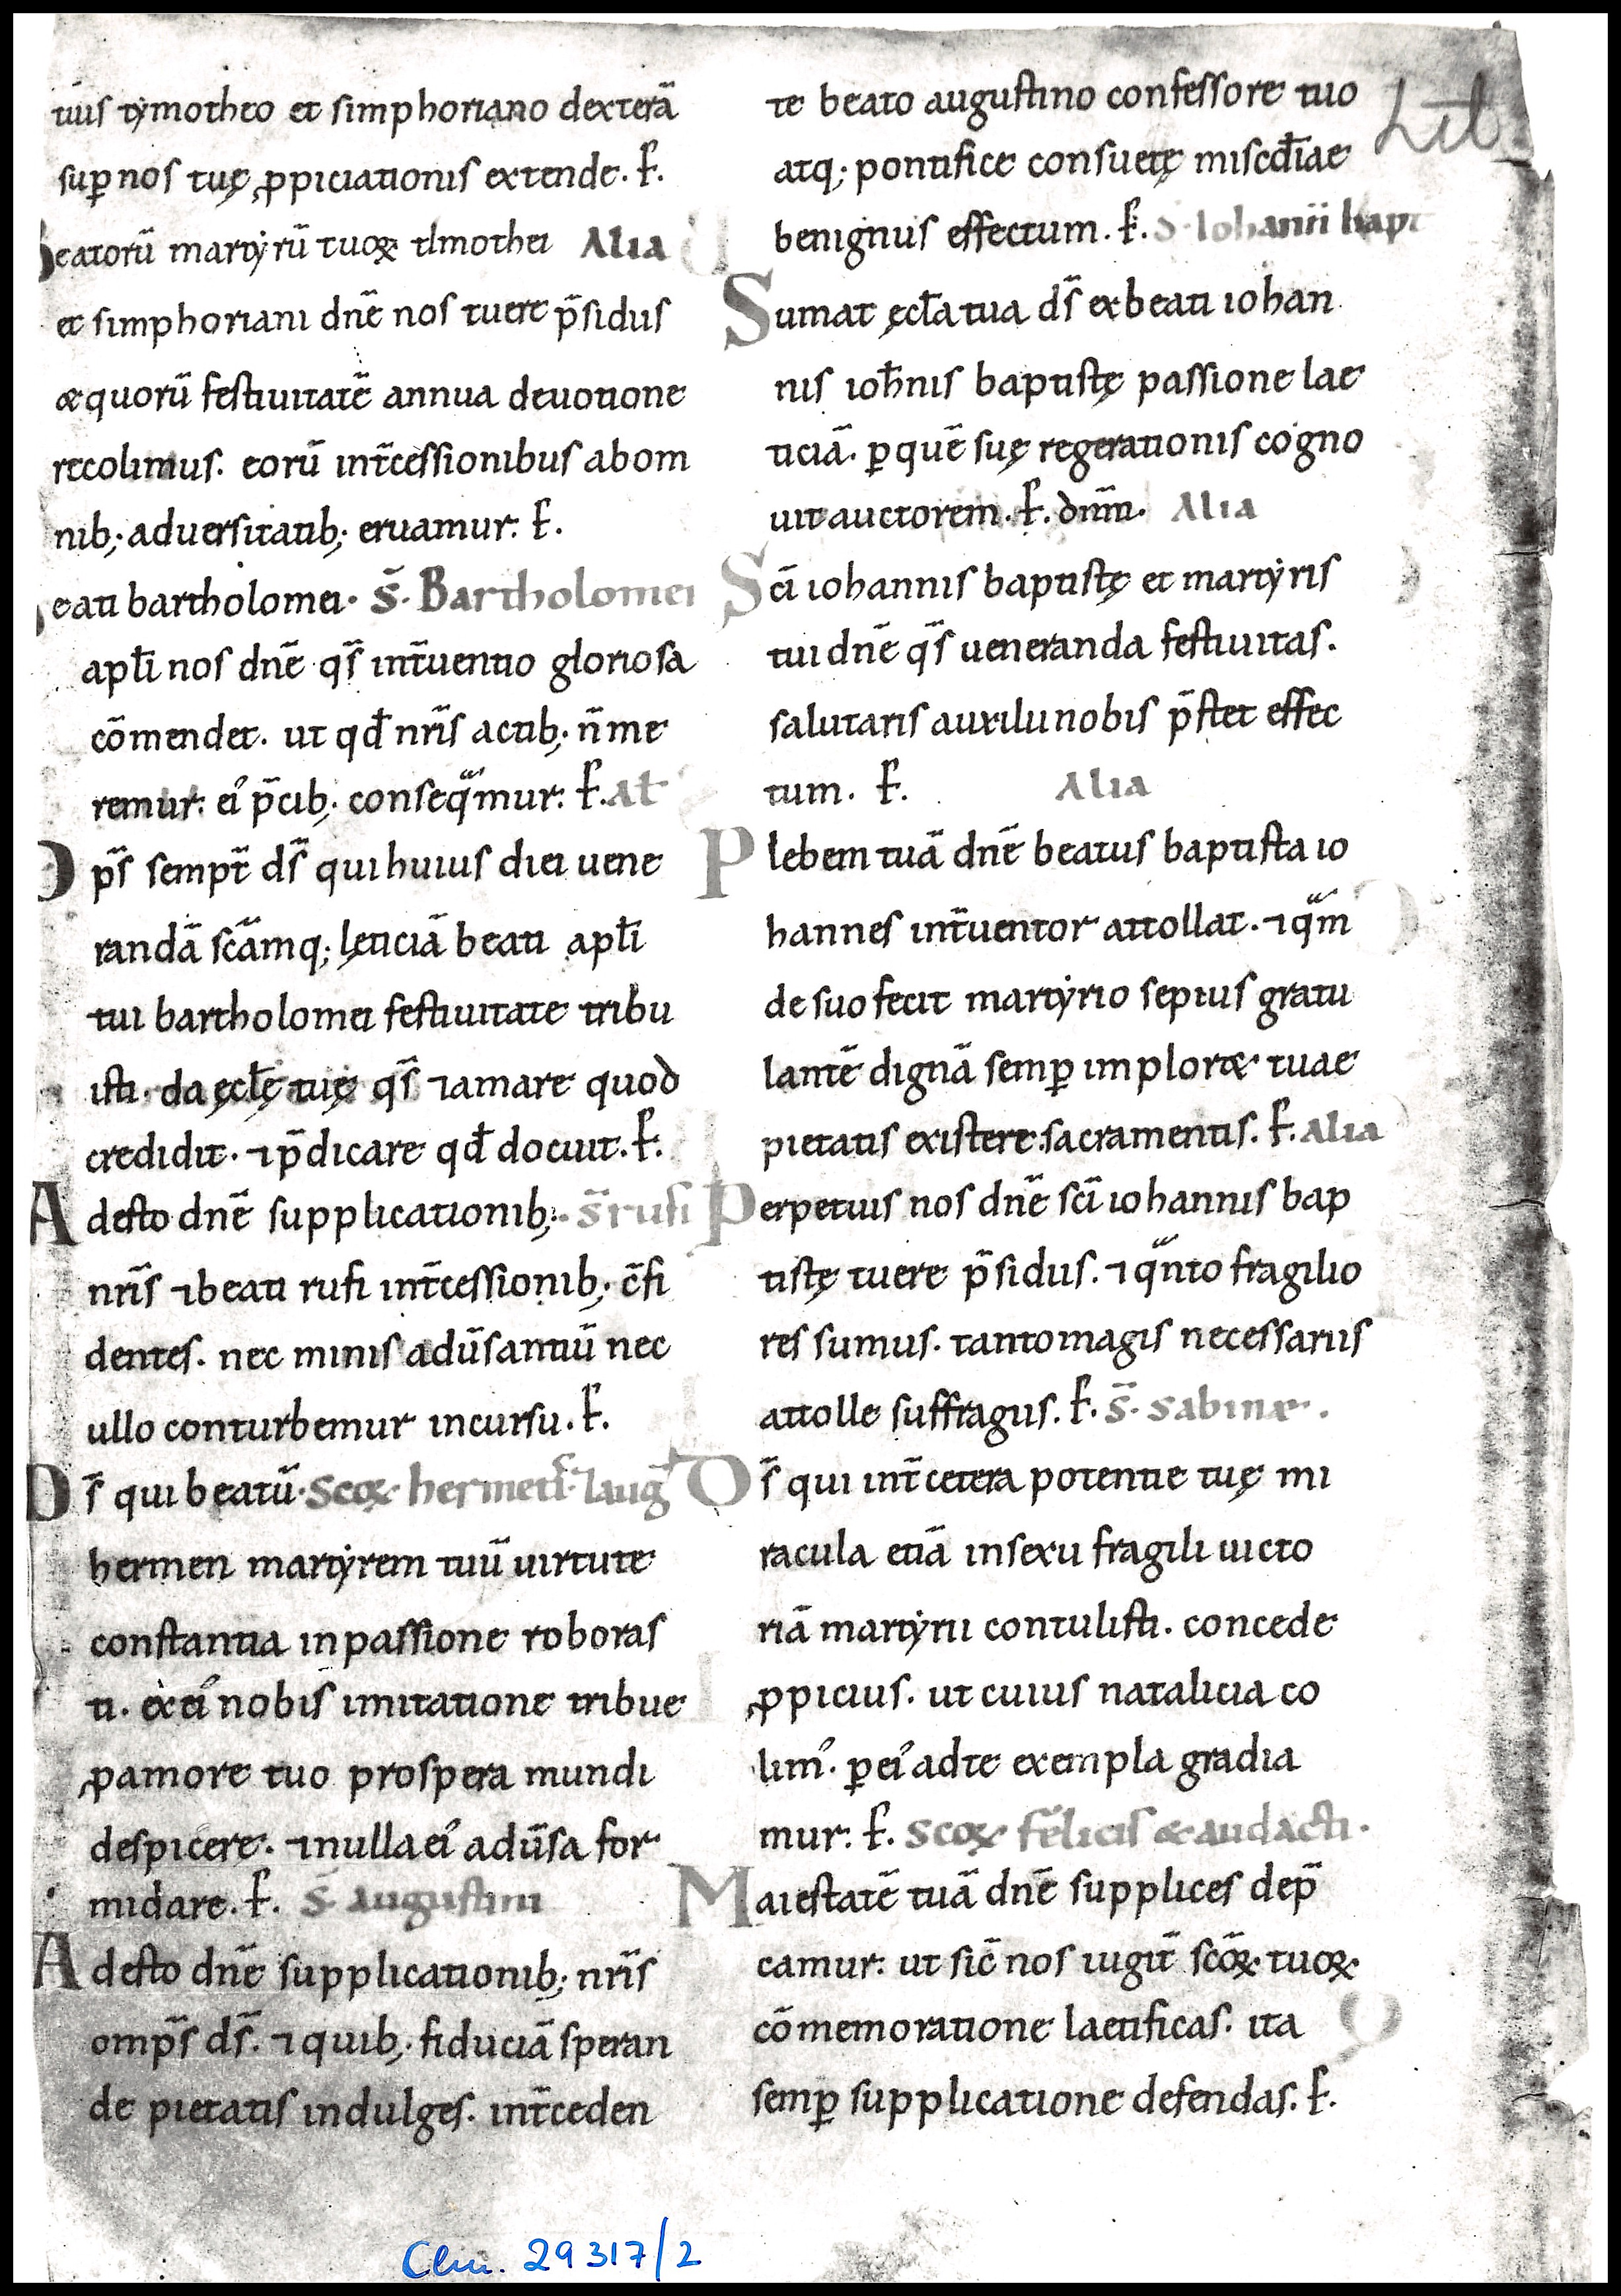 tuis tẏmotheo et simphoriano dexterā
suꝑ nos tuę ꝓpiciationis extende. ꝑ.
Beatorū martẏrū tuoꝝ tImothei Alia
et simphoriani dnē nos tuere p̄sidus
æquorū festiuitatē annua deuotione
recolimus. eorū int̄cessionibus abom
nib; aduersitatib; eruamur. ꝑ.
Beati bartholomei. S̄. Bartholomei
apłi nos dnē qs̄ int̄uentio gloriosa
cōmendet. ut qđ nr̄is actib; n̄ me
remur. ei᾽ p̄cib; conseqͣmur. ꝑ. Ał
Op̄s sempt̄ ds̄ qui huius diei uene
randā scāmq; lęticiā beati apłi
tui bartholomei festiuitate tribu
isti. da ęcłę tuę qs̄ ⁊amare quod
credidit. ⁊p̄dicare qđ docuit. ꝑ.
Adesto dnē supplicationib;. S̄ rufi
nr̄is ⁊beati rufi int̄cessionib; c̄fi
dentes. nec minis adūsantiū nec
ullo conturbemur incursu. ꝑ.
Ds̄ qui beatū. Scoꝝ hermetis. ⁊aug
hermen martẏrem tuū uirtute
constantia inpassione roboras
ti. ex ei᾽ nobis imitatione tribue
ꝓamore tuo prospera mundi
despicere. ⁊nulla ei᾽ adūsa for
midare. ꝑ. S̄. augustini
Adesto dnē supplicationib; nr̄is
omp̄s ds̄. ⁊quib; fiduciā speran
de pietatis indulges. int̄ceden
te beato augustino confessore tuo
atq; pontifice consuetę misc̄diae
benignus effectum. ꝑ. S. Iohanni bapt
Sumat ęcła tua ds̄ exbeati iohan
nis ioħnis baptistę passione lae
ticiā. ꝑ quē suę regerationis cogno
uit auctorem. ꝑ. dnm̄. Alia
Sc̄i iohannis baptistę et martẏris
tui dnē qs̄ ueneranda festiuitas.
salutaris auxilii nobis p̄stet effec
tum. ꝑ. Alia
Plebem tuā dnē beatus baptista io
hannes int̄uentor attollat. ⁊qͣm
de suo fecit martẏrio sepius gratu
lantē dignā semꝑ imploræ tuae
pietatis existere sacramentis. ꝑ. Alia
Perpetuis nos dnē sc̄i iohannis bap
tistę tuere p̄sidus. ⁊qͣnto fragilio
res sumus. tantomagis necessariis
attolle suffragiis. ꝑ. S̄. Sabinæ.
Ds̄ qui int̄cetera potentie tuę mi
racula etiā insexu fragili uicto
riā martẏrii contulisti. concede
ꝓpicius. ut cuius natalicia co
lim᾽. ꝑ ei᾽ adte exempla gradia
mur. ꝑ. Scoꝝ felicis & audacti.
Maiestatē tuā dnē supplices dep̄
camur. ut sic̄ nos iugit̄ scōꝝ tuoꝝ
cōmemoratione laetificas. ita
semꝑ supplicatione defendas. ꝑ.
Clm. 29317/2